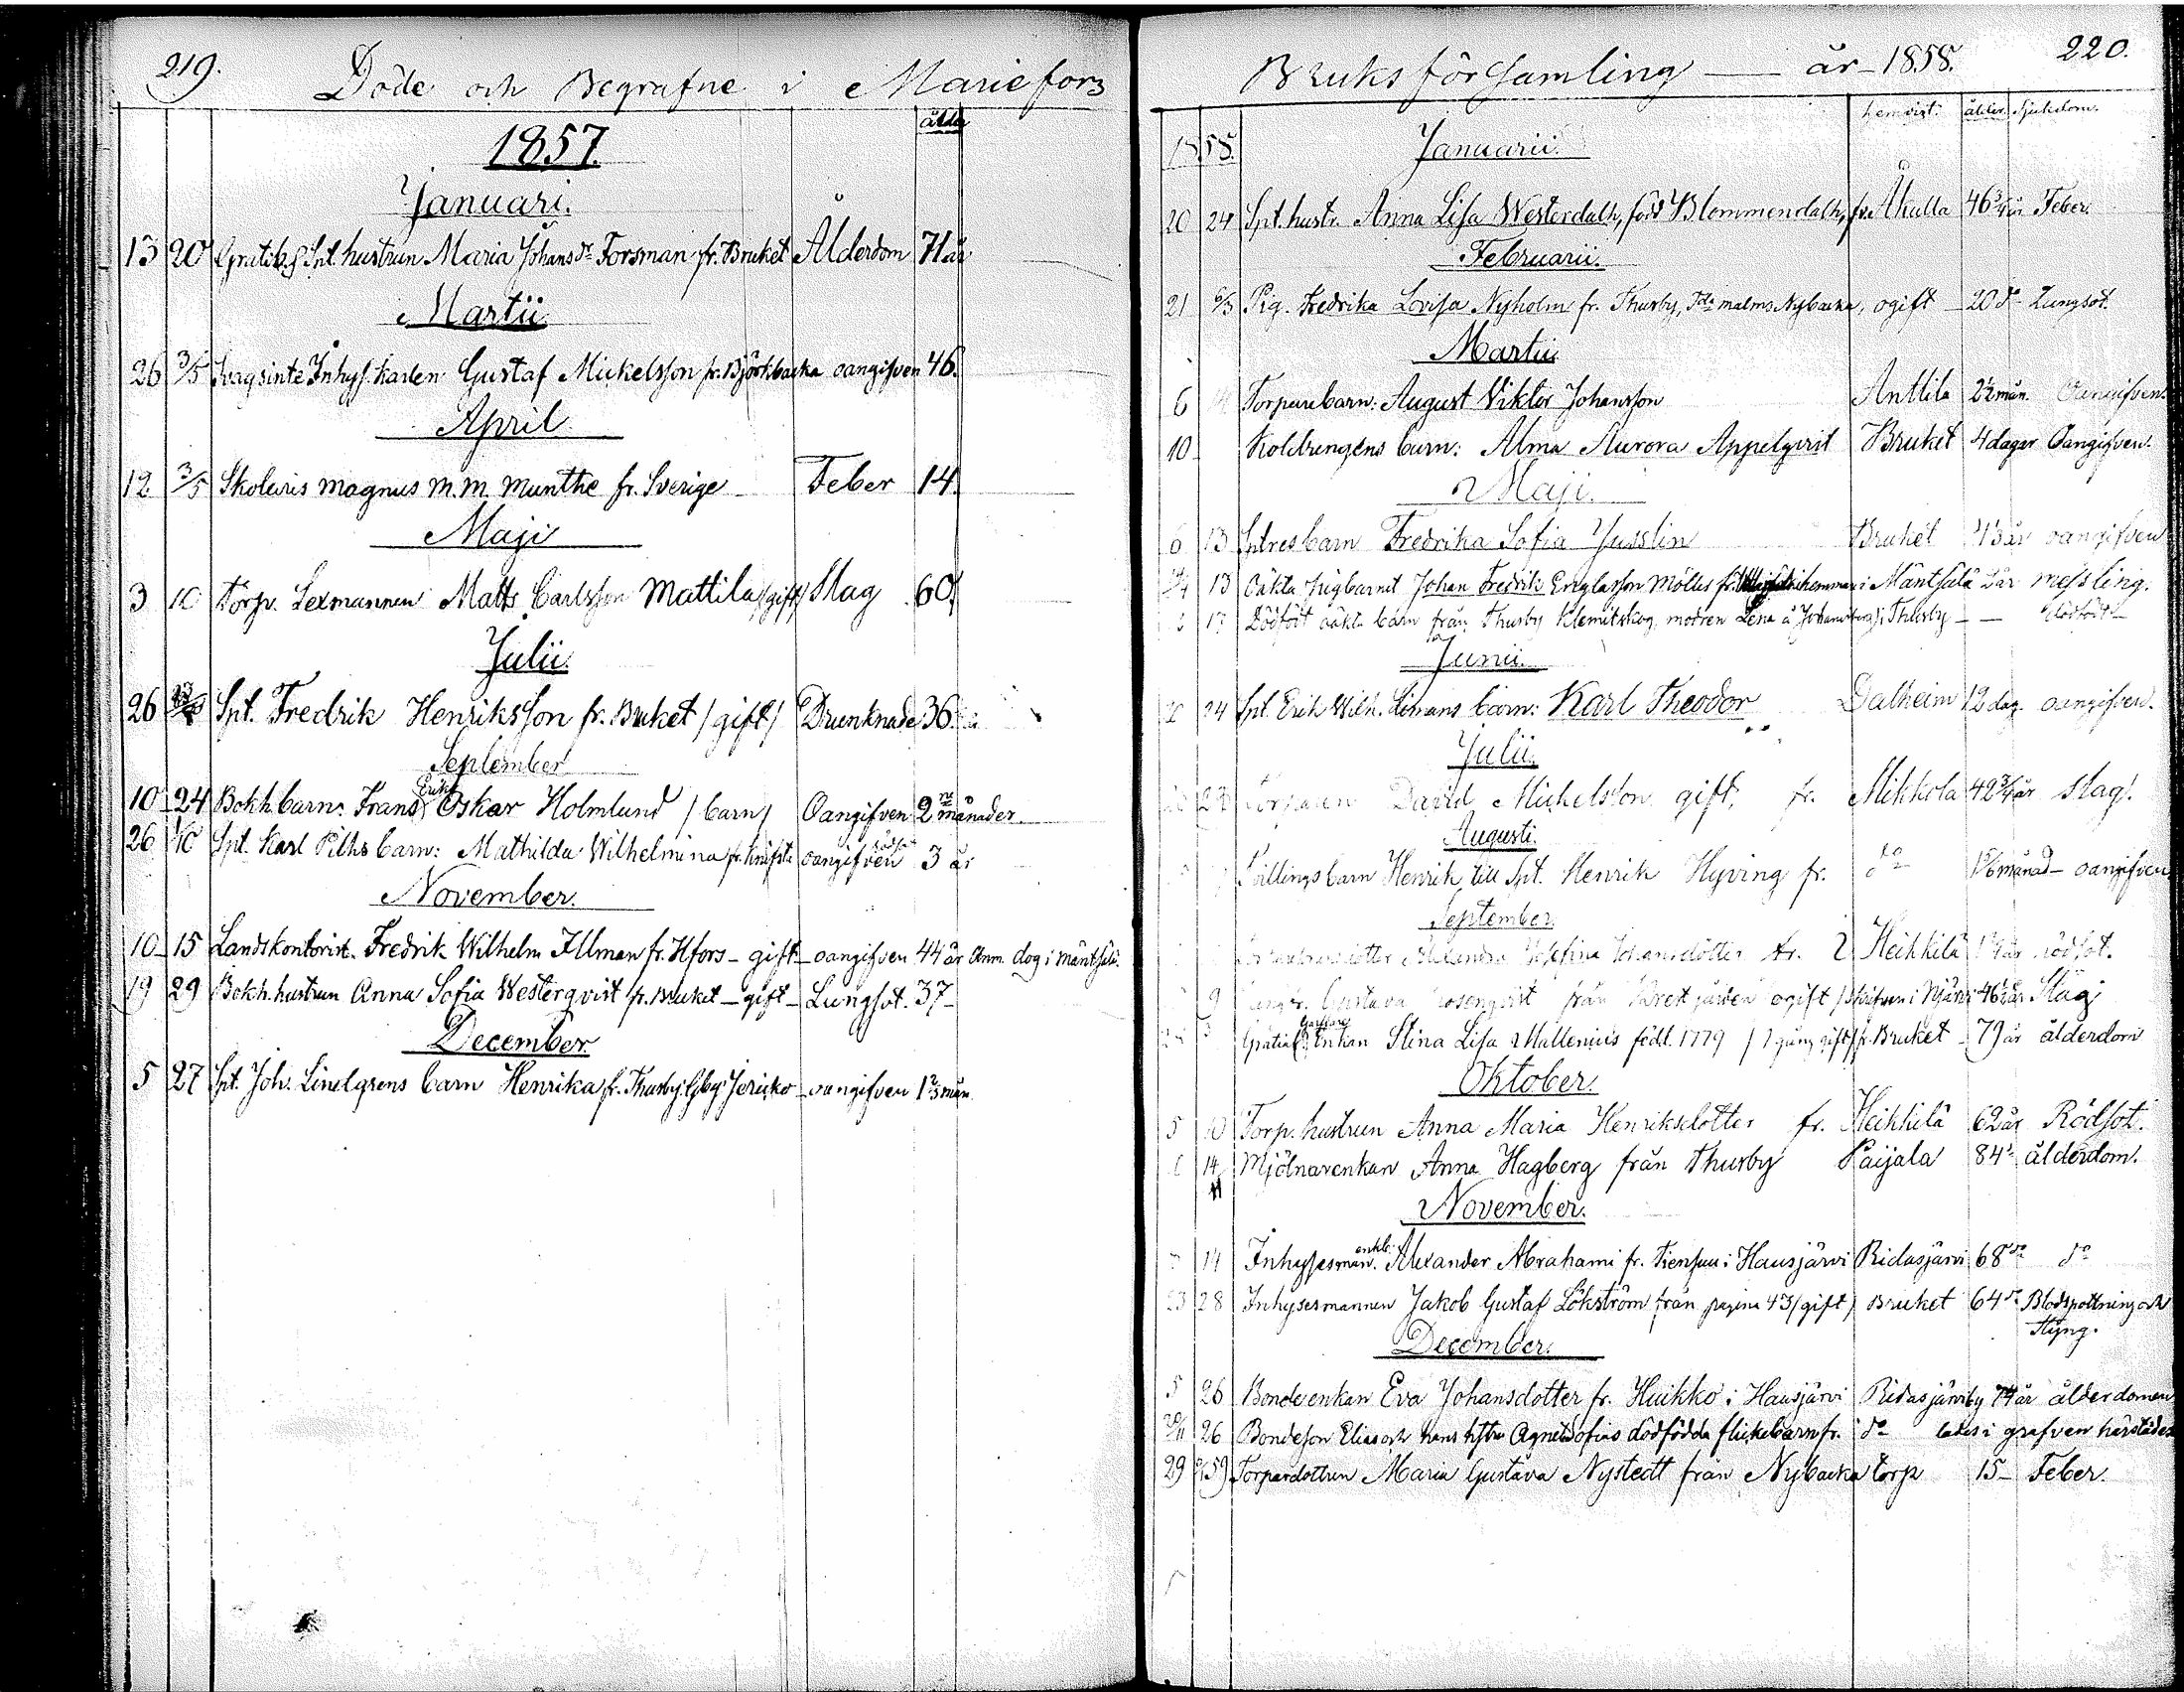 219.
Döde och Begrafne i Mariefors
ålder
1857.
Januari.
13 20 Gratik. Spt. hustrun Maria Johansdr Forsman fr. Bruket Ålderdom 71 år
Martii.
26 3/5 Svagsinte Inhys. karlen Gustaf Mickelsson fr. Björkbacka oangifven 46.
April
12 3/5 Skolaris Magnus M. M. Munthe fr. Sverige Feber 14.
Maji
3 10 Torp. Sexmannen Matts Carlsson Mattila /gift/ Slag 60.
Julii.
26 Spt. Fredrik Henriksson fr. Bruket /gift/ Drunknade 36.
September
10 24 Bokh. barn: Frans Erik Oskar Holmlund /barn/ Oangifven 2 månader.
26 1/10 Spt. Karl Pilhs barn: Mathilda Wilhelmina fr. oangifven rödsot 3 år
November.
10 15 Landskontorist. Fredrik Wilhelm Illman fr. Hfors - gift - oangifven 44 år Anm. dog i Mäntsälä.
19 29 Bokh. hustrun Anna Sofia Westerqvist fr. Bruket - gift - Lungsot. 37 -
December.
5 27 Spt. Joh. Lindgrens barn Henrika fr. Thusby Jeriko - oangifven 1 2/3 mån
Bruksförsamling — år 1858. 220.
hemvist. ålder. Sjukdom.
1858. Januarii.
20 24 Spt. hustr. Anna Lisa Westerdalh, född Blommendalh, fr. Åkulla 46 3/4 år Feber.
Februarii.
21 6/3 Pig. Fredrika Lovisa Nyholm fr. Thusby, malms Nybacka, ogift - 20 do Lungsot.
Martii
6 Torparebarn: August Viktor Johansson Anttila 2 1/2 mån. Oangifven.
10 Koldrengens barn: Alma Aurora Appelqvist Bruket 4 dagar Oangifven.
Maji.
6 13 Sptres barn Fredrika Sofia Jusslin Bruket oangifven
13 Oäkta pigbarnet Johan Fredrik Erglasson Mölles fr. i Mäntsälä 2 år messling.
17 Dödfödt oäkta barn från Thusby Klemitskog, modren Lena å i Thusby - - dödfödt -
Junii.
24 Spt. Erik Wilh. Limans barn: Karl Theodor Dalheim 12 dag. oangifven.
Julii.
Torparen David Michelsson gift, fr. Mikkola 42 3/4 år Slag.
Augusti.
Tvillingsbarn Henrik, till Spt. Henrik Hyving fr. do 1 5/6 månad - oangifven
September.
Alexandra Josefina Johansdotter fr. Heikkilä rödsot.
9 Gustava Rosenqvist från ogift 46 1/2 år Slag
Gratial. Enkan Stina Lisa Mallenius född 1779 / gång gift/ fr. Bruket - 79 år ålderdom
Oktober.
5 10 Torp. hustrun Anna Maria Henriksdotter fr. Heikkilä 62 år Rödsot.
14 Mjölnarenkan Anna Hagberg från Thusby Paijala 84 ålderdom.
November.
14 Inhysesman. enkl. Alexander Abrahami fr. Tiensuu i Hausjärvi Ridasjärvi 68 do do
23 28 Inhysesmannen Jakob Gustaf Lökström från pagina 43 /gift/ Bruket 64 do Blodspottning och
Styng.
December.
5 26 Bondeenkan Eva Johansdotter fr. Huikko i Hausjärvi Ridasjärviby 74 år ålderdomen
29/11 26 Bondeson Elias och hans hstru Agneta Sofias dödfödda flickebarn fr. do lades i grafven härstädes
29 59 Torpardottren Maria Gustava Nystedt från Nybacka torp 15 - Feber.